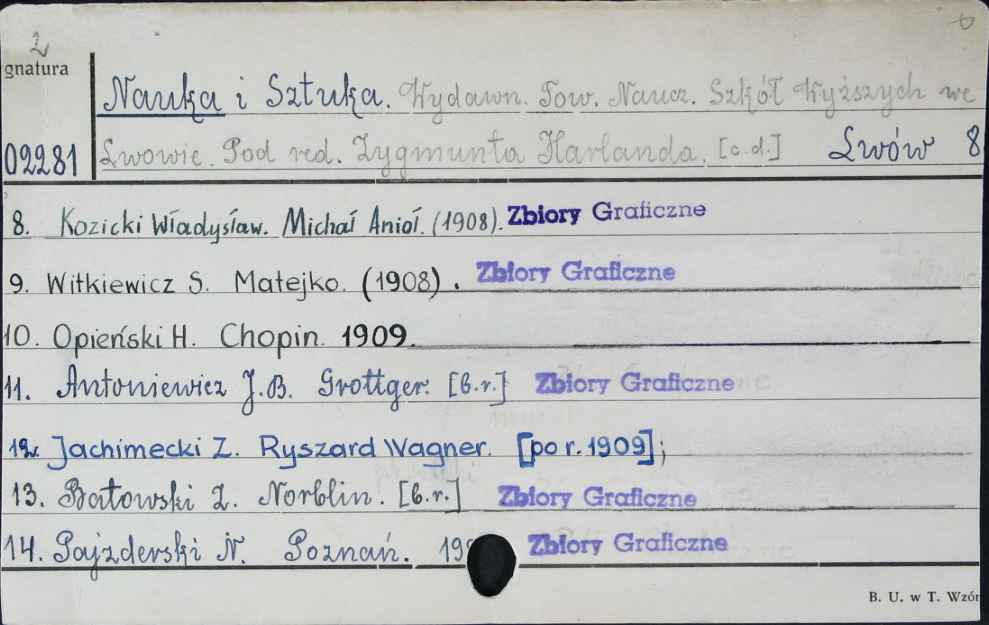 2
gnatura
Nauka i Sztuka. Wydawn. Tow. Naucz. Szkół Wyższych we
02281 Lwowie. Pod red. Zygmunta Harlanda. [c.d.] Lwów 8
8. Kozicki Władysław. Michał Anioł. (1908). Zbiory Graficzne
9. Witkiewicz S. Matejko. (1908). Zbiory Graficzne
10. Opieński H. Chopin. 1909.
11. Antoniewicz J.B. Grottger. [b.r.] Zbiory Graficzne
12. Jachimecki Z. Ryszard Wagner. [po r. 1909];
13. Batowski Z. Norblin. [b.r.] Zbiory Graficzne
14. Pajzderski N. Poznań. 19 Zbiory Graficzne
B. U. w T. Wzór